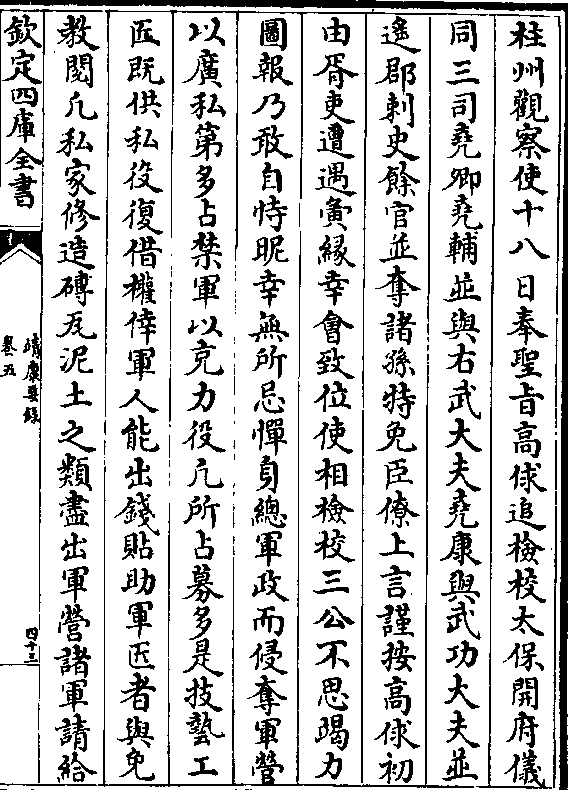 桂州觀察使十八日奉聖㫖高俅追檢校太保開府儀
同三司堯卿堯輔並與右武大夫堯康與武功大夫並
遥郡刺史餘官並奪諸孫特免臣僚上言謹按高俅初
由胥吏遭遇夤縁幸會致位使相檢校三公不思竭力
圖報乃敢自恃昵幸無所忌憚身總軍政而侵奪軍營
以廣私第多占禁軍以充力役凡所占募多是技藝工
匠既供私役復借權倖軍人能出錢貼助軍匠者與免
教閲凡私家修造磚瓦泥土之類盡出軍營諸軍請給
欽定四庫全書
靖康要録
卷五
四十三